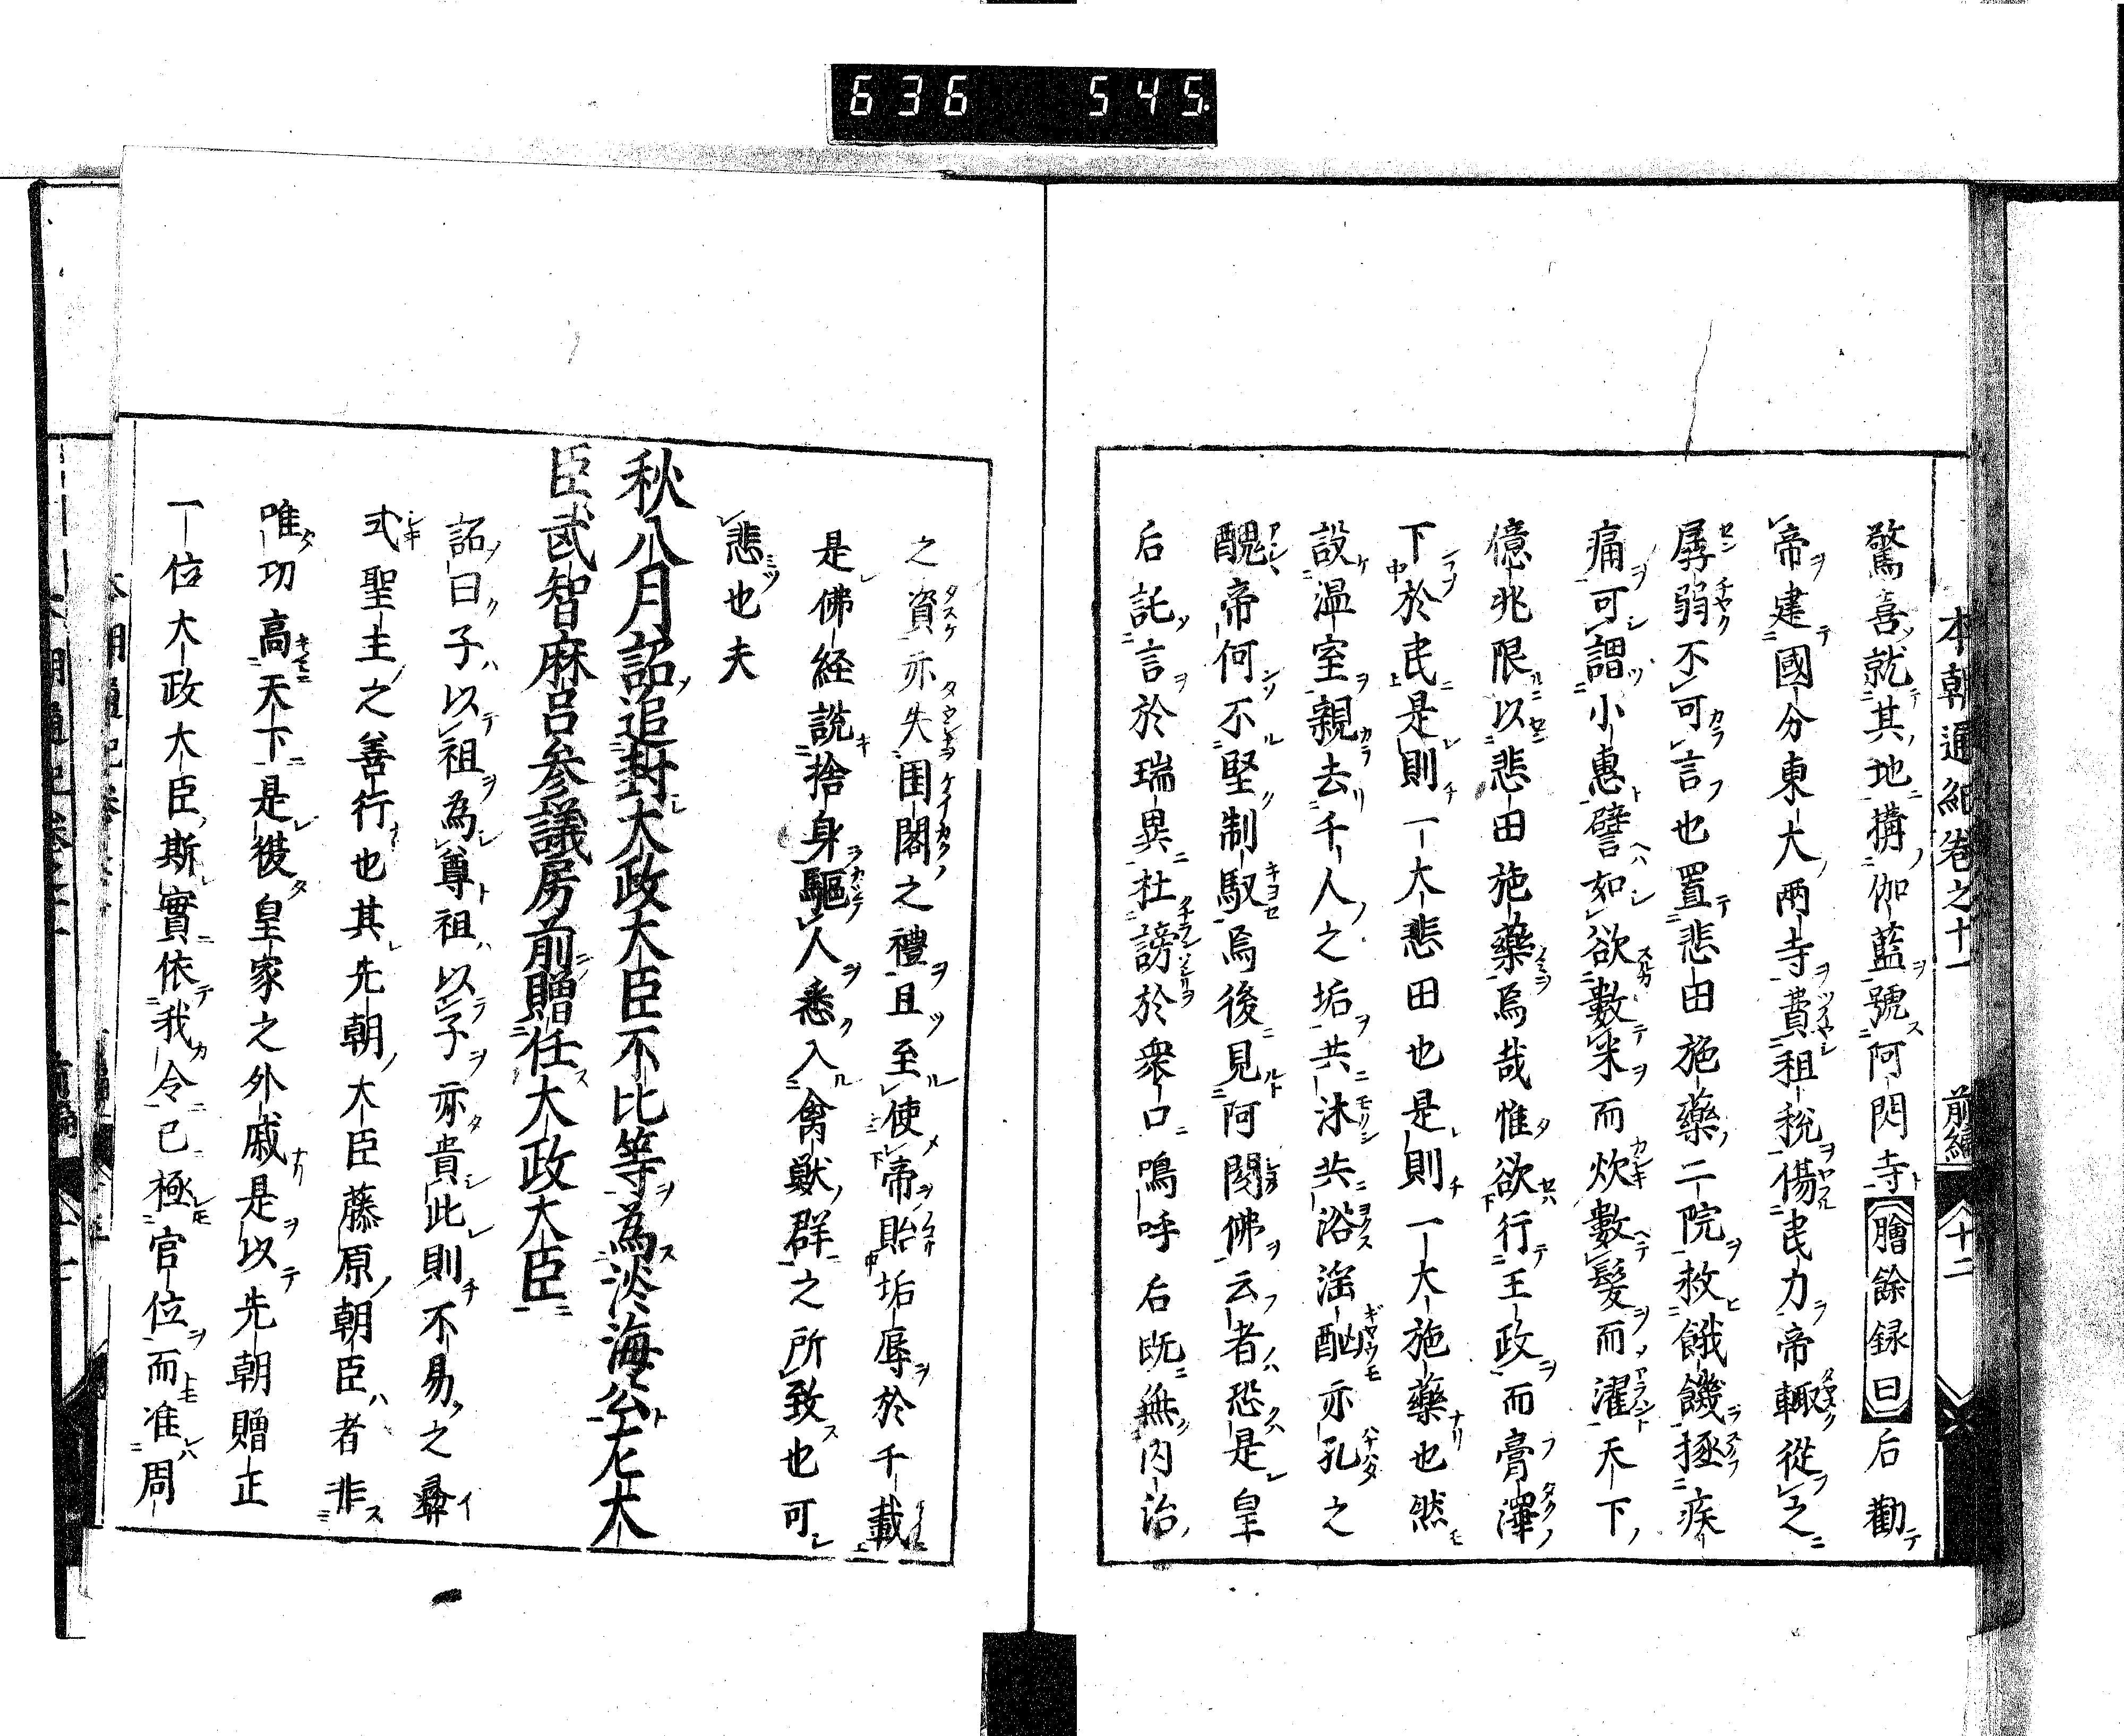 636 545.
本朝通紀卷之十一 前編 十二
驚喜就其地構伽藍號阿閦寺膾餘録曰后勸
帝建國分東大兩寺費租税傷民力帝輙從之
孱弱不可言也置悲田施藥二院救餓饑拯疾
痛可謂小惠譬如欲數米而炊數髮而濯天下
億兆限以悲田施藥焉哉惟欲行王政而膏澤
下於民是則一大悲田也是則一大施藥也然
設温室親去千人之垢共沐共浴滛酗亦孔之
醜帝何不堅制馭焉後見阿閦佛云者恐是皇
后託言於瑞異杜謗於衆口鳴呼后既無内治
之資亦失閨閣之禮且至使帝貽垢辱於千載
是佛経說捨身驅人悉入禽獣群之所致也可
悲也夫
秋八月詔追封大政大臣不比等為淡海公左大
臣武智麻呂参議房前贈任大政大臣
詔曰子以祖為尊祖以子亦貴此則不易之彝
式聖主之善行也其先朝大臣藤原朝臣者非
唯功高天下是復皇家之外戚是以先朝贈正
一位大政大臣斯實依我令已極官位而准周